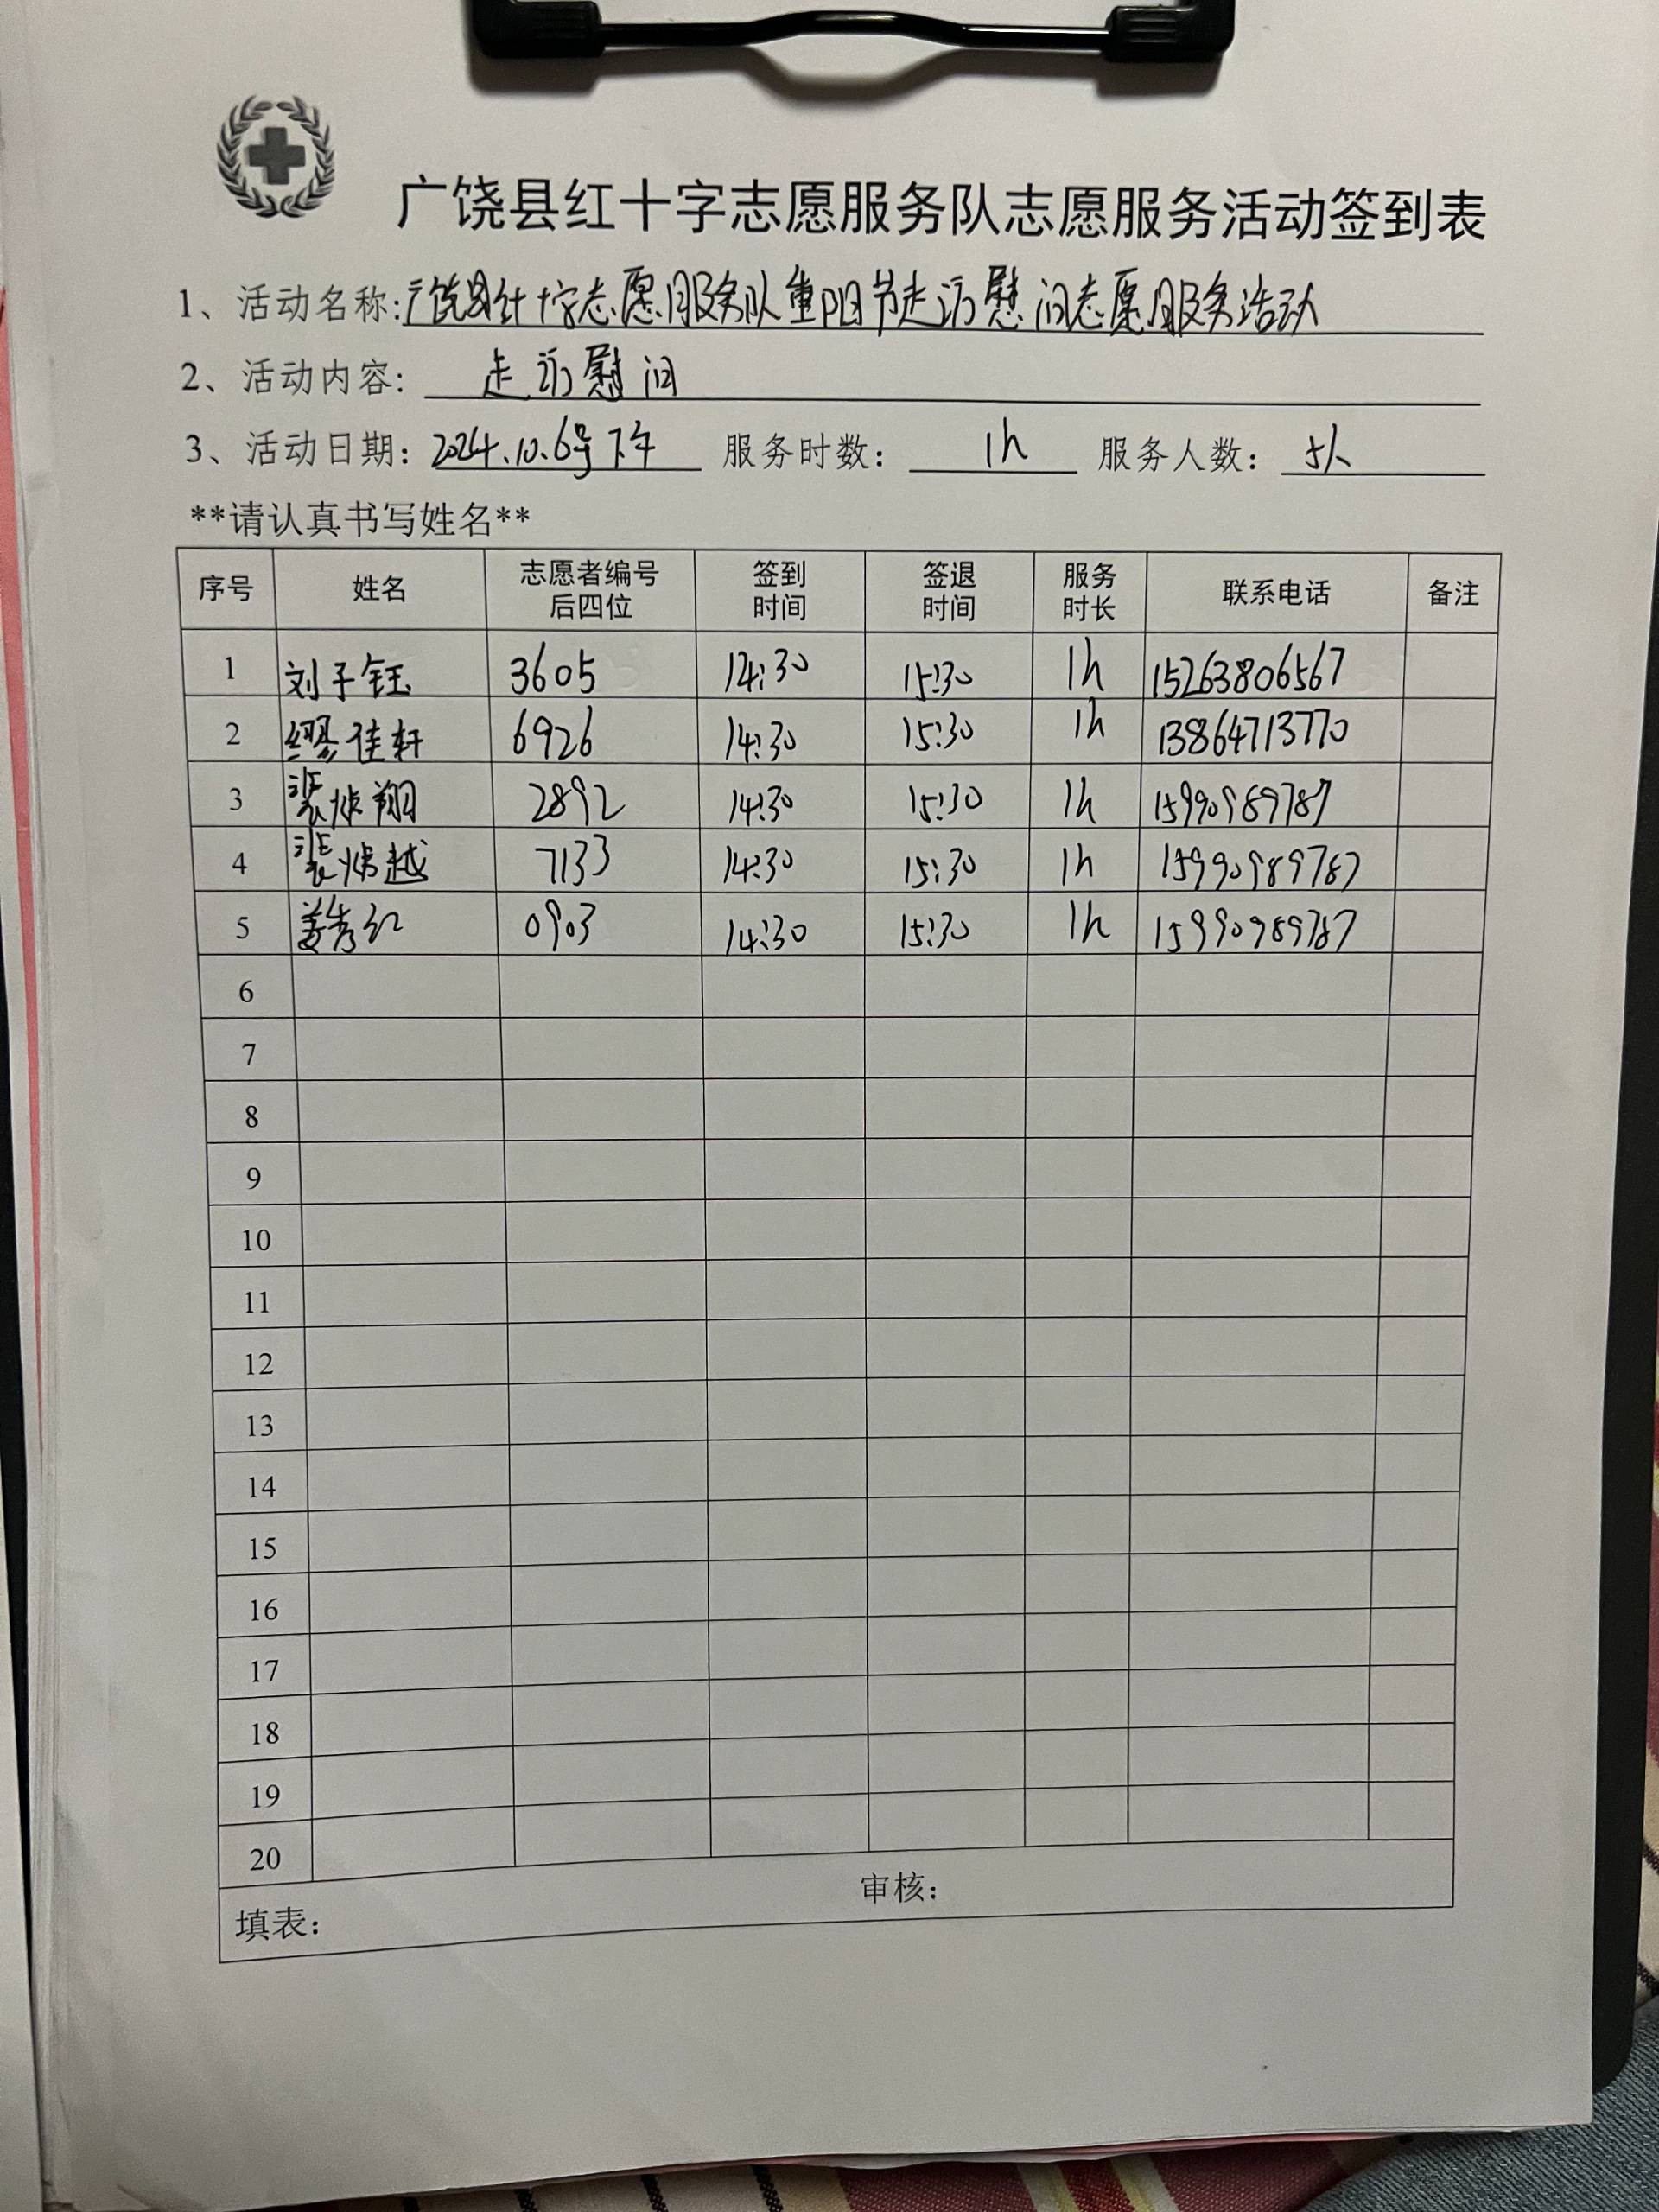 广饶县红十字志愿服务队志愿服务活动签到表
1、活动名称:广饶县红十字志愿服务队重阳节走访慰问志愿服务活动
2、活动内容: 走访慰问
3、活动日期: 2024.10.6号下午 服务时数: 1h 服务人数: 5人
**请认真书写姓名**
序号 姓名 志愿者编号后四位 签到时间 签退时间 服务时长 联系电话 备注
1 刘子钰 3605 14:30 15:30 1h 15263806567
2 缪佳轩 6926 14:30 15:30 1h 13864713770
3 裴焯翔 2892 14:30 15:30 1h 15990989787
4 裴焯越 7133 14:30 15:30 1h 15990989787
5 姜秀红 0903 14:30 15:30 1h 15990989787
6
7
8
9
10
11
12
13
14
15
16
17
18
19
20
填表: 审核: